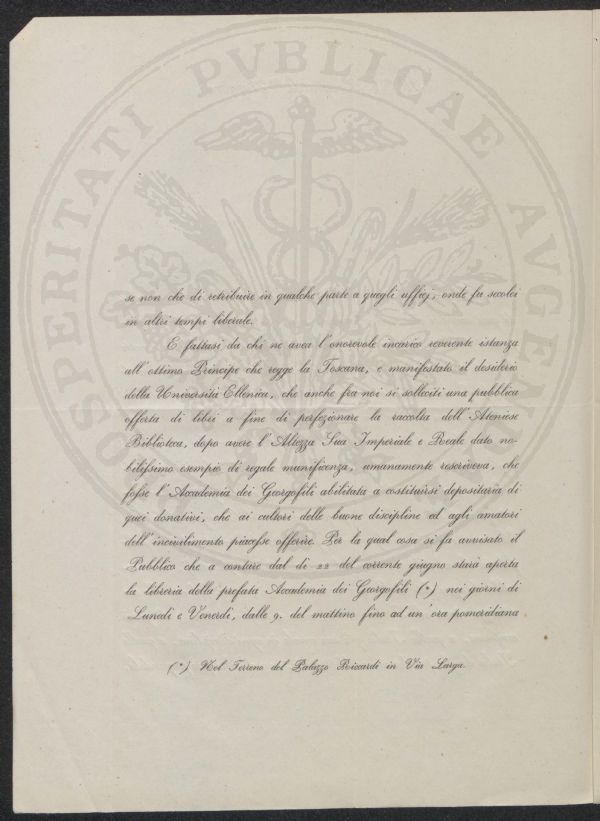 PROSPERITATI PVBLICAE AVGEN
se non che di retribuire in qualche parte a quegli ufficj, onde fu secolei
in altri tempi liberale.
E fattasi da chi ne avea l'onorevole incarico reverente istanza
all'ottimo Principe che regge la Toscana, e manifestato il desiderio
della Università Ellenica, che anche fra noi si solleciti una pubblica
offerta di libri a fine di perfezionare la raccolta dell'Ateniese
Biblioteca, dopo avere l'Altezza Sua Imperiale e Reale dato no-
bilissimo esempio di regale munificenza, umanamente rescriveva, che
fosse l'Accademia dei Georgofili abilitata a costituirsi depositaria di
quei donativi, che ai cultori delle buone discipline ed agli amatori
dell'incivilimento piacesse offerire. Per la qual cosa si fa avvisato il
Pubblico che a contare dal dì 22 del corrente giugno starà aperta
la libreria della prefata Accademia dei Georgofili (*) nei giorni di
Lunedì e Venerdì, dalle 9. del mattino fino ad un'ora pomeridiana
(*) Nel Terreno del Palazzo Riccardi in Via Larga.